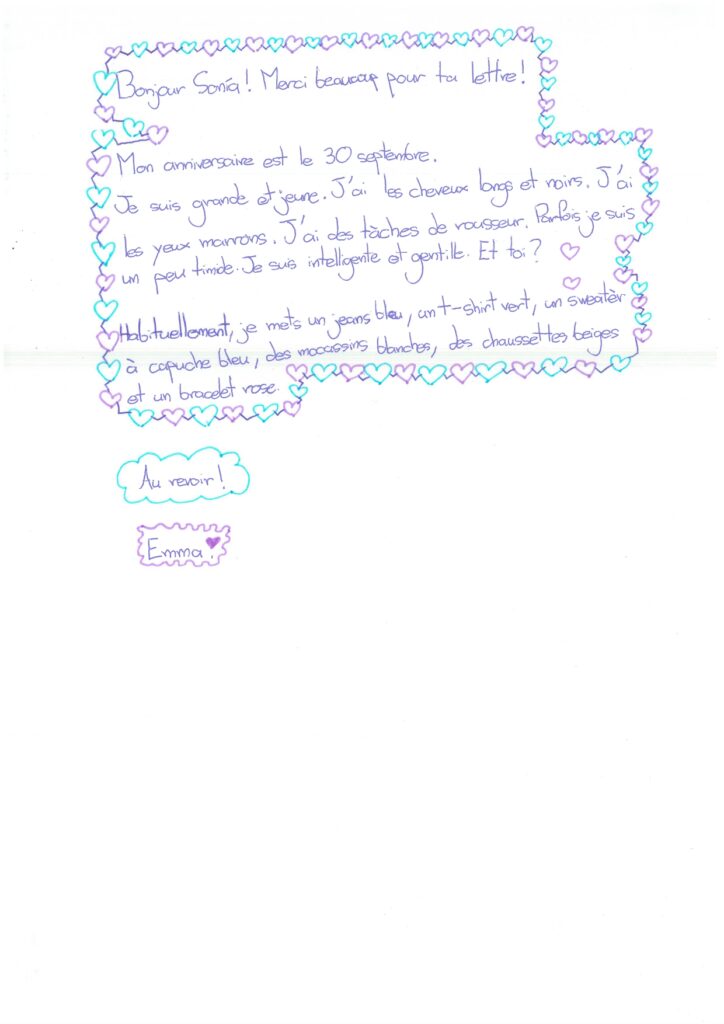 Bonjour Sonía! Merci beaucoup pour ta lettre!
Mon anniversaire est le 30 septembre.
Je suis grande et jeune. J'ai les cheveux longs et noirs. J'ai
les yeux marrons. J'ai des tàches de rousseur. Parfois je suis
un peu timide. Je suis intelligente et gentille. Et toi?
Habituellement, je mets un jeans bleu, un t-shirt vert, un sweatèr
à capuche bleu, des mocassins blanches, des chaussettes beiges
et un bracelet rose.
Au revoir!
Emma!